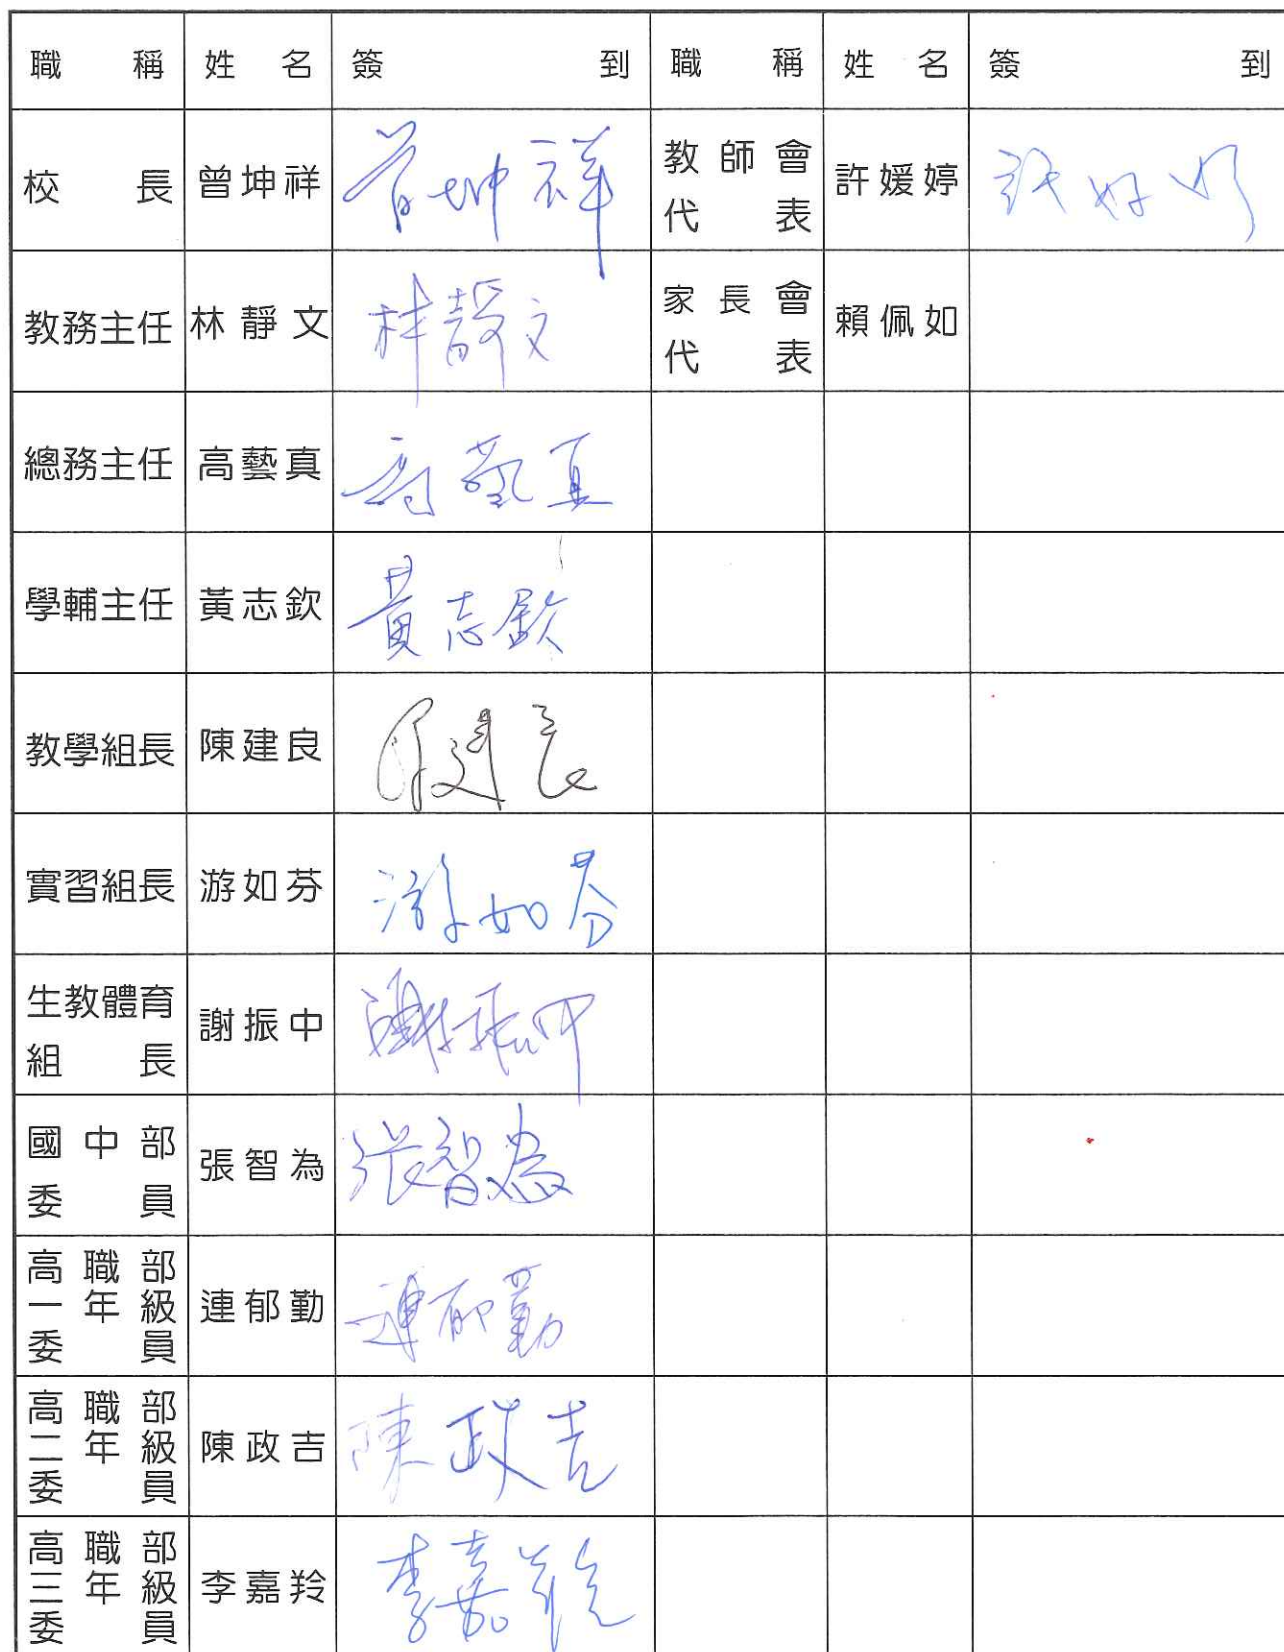 職稱 姓名 簽到 職稱 姓名 簽到
校長 曾坤祥 曾坤祥 教師會代表 許媛婷
教務主任 林靜文 林靜文 家長會代表 賴佩如
總務主任 高藝真 高藝真
學輔主任 黃志欽 黃志欽
教學組長 陳建良 陳建良
實習組長 游如芬 游如芬
生教體育組長 謝振中 謝振中
國中部委員 張智為 張智為
高職部一年級委員 連郁勤 連郁勤
高職部二年級委員 陳政吉 陳政吉
高職部三年級委員 李嘉羚 李嘉羚